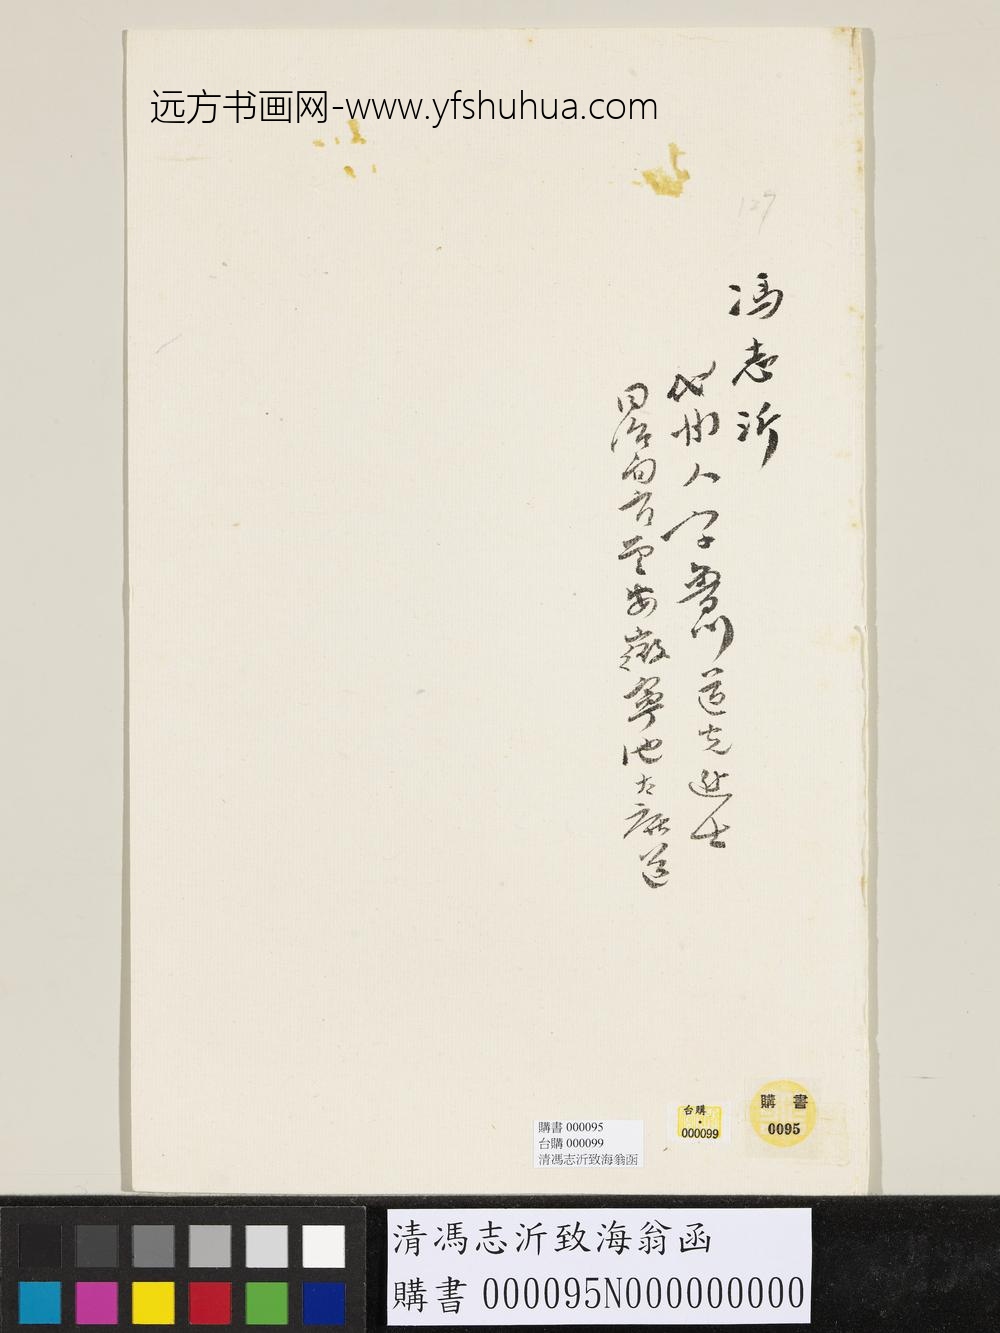 远方书画网-www.yfshuhua.com
127
馮志沂
代州人字魯川道光進士
同治間官至安徽寧池太廣道
購書 000095
台購 000099
清馮志沂致海翁函
台購
000099
購書
0095
清馮志沂致海翁函
購書 000095N000000000